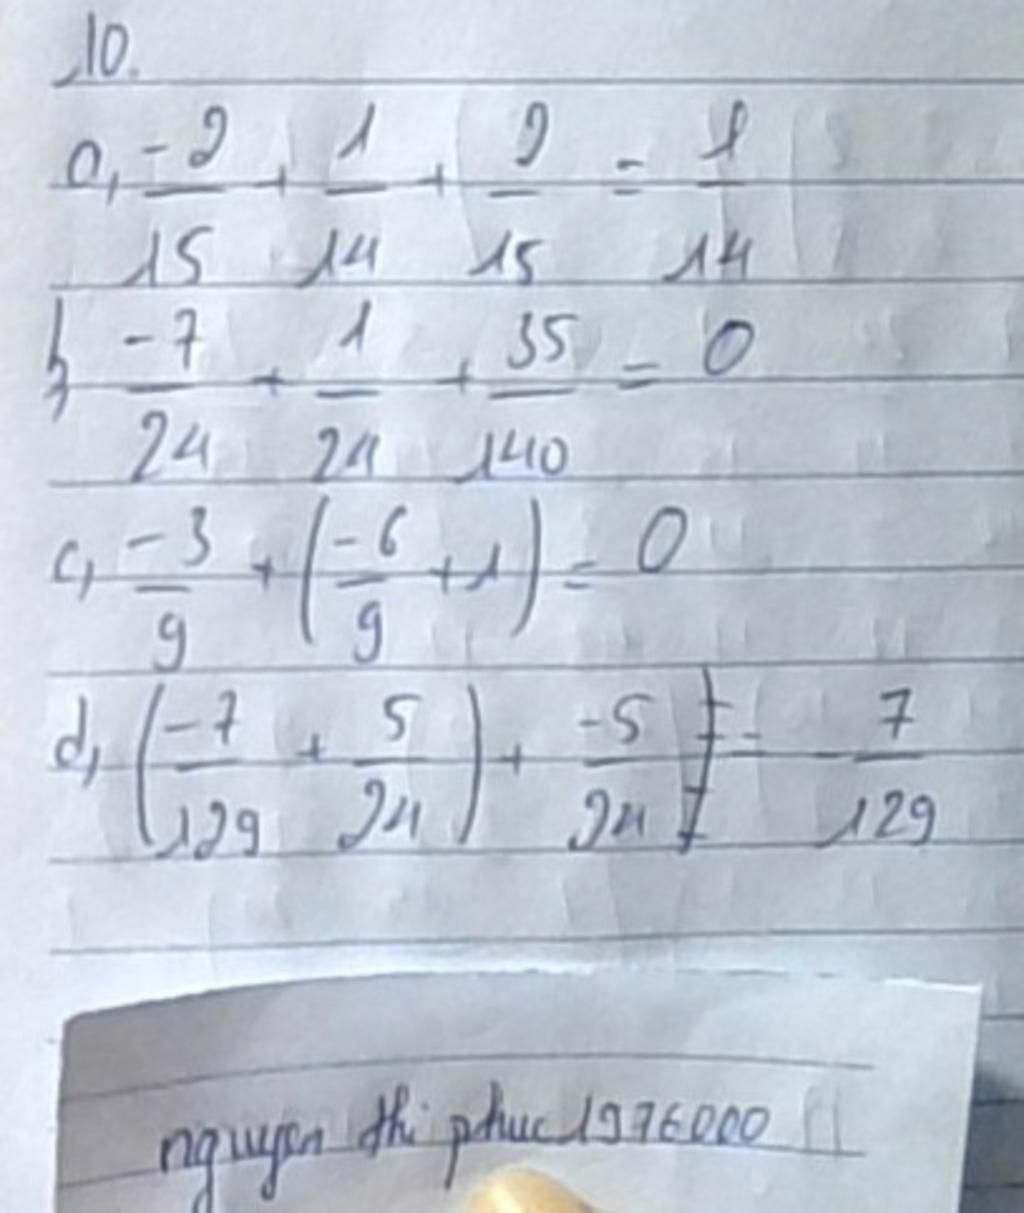 10.
a, -2/15 + 1/14 + 2/15 = 1/14
b, -7/24 + 1/24 + 35/140 = 0
c, -3/9 + (-6/9 + 1) = 0
d, (-7/129 + 5/24) + -5/24 = -7/129
nguyen thi phuc 1976000